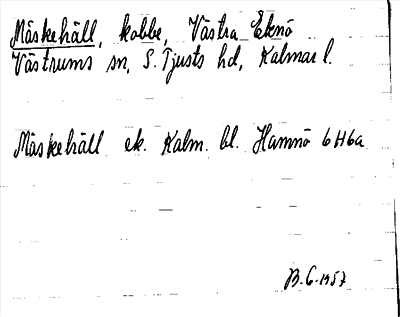 Måskehäll, kobbe, Västra Eknö
Västrums sn, S. Tjusts hd, Kalmar l.
Måskehäll ek. Kalm. bl. Hamnö 6H6a
B.G. 1957